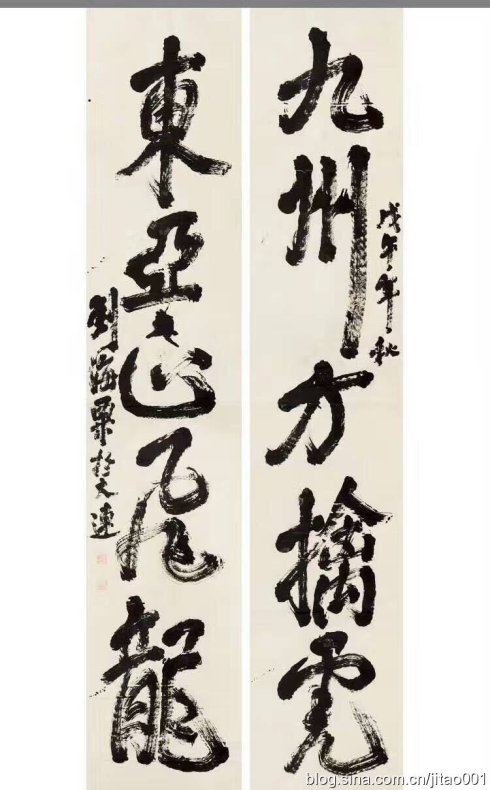 九州方擒虎
戊午年秋
東亞正飛龍
劉海粟於大連
blog.sina.com.cn/jitao001